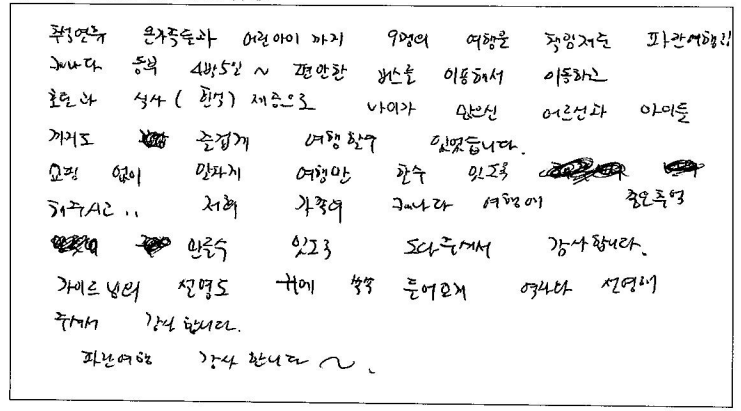 추석연휴 온가족들과 어린아이 까지 9명의 여행을 책임져준 파란여행
캐나다 동부 4박5일 ~ 편안한 버스를 이용해서 이동하고
호텔과 식사 ( 한식 ) 제공으로 나이가 많으신 어르신과 아이들
까지도 즐겁게 여행할수 있었습니다.
쇼핑 없이 알차게 여행만 할수 있도록
해주시고 .. 저희 가족이 캐나다 여행에 좋은추억
만들수 있도록 도와주셔서 감사합니다.
가이드님의 설명도 귀에 쏙쏙 들어오게 설명해
주셔서 감사합니다.
파란여행 감사 합니다 ~ .